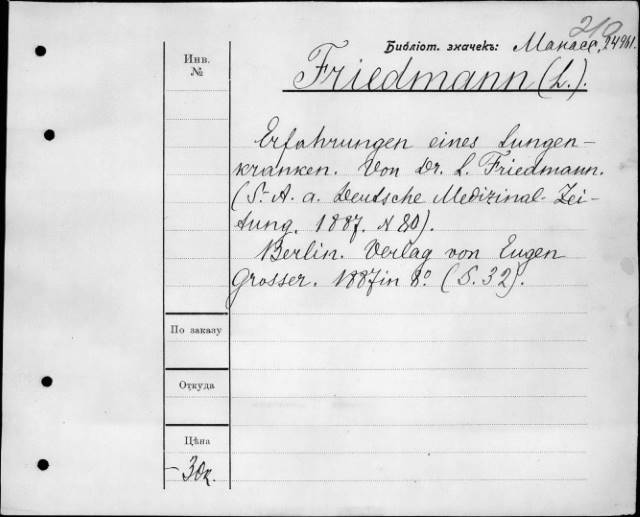 210
Библіот. значекъ: Манасс. 24961.
Инв.
№
Friedmann (L.).
Erfahrungen eines Lungen-
kranken. Von Dr. L. Friedmann.
(S. A. a. Deutsche Medizinal-Zei-
tung. 1887. N 80).
Berlin. Verlag von Eugen
Grosser. 1887 in 8º. (S. 32).
По заказу
Откуда
Цѣна
- 30к.